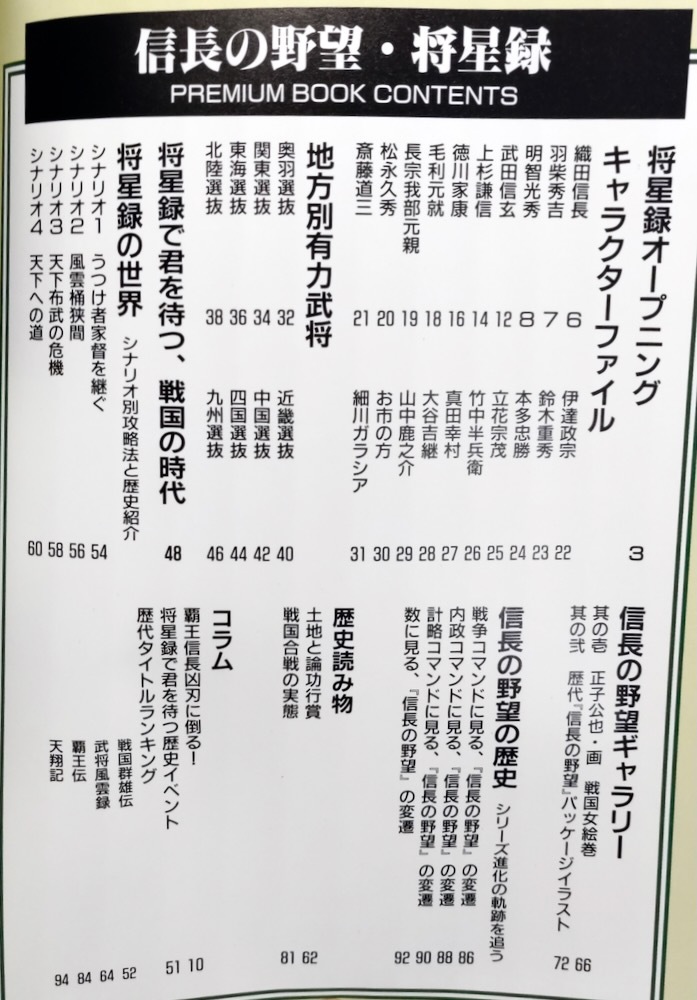 信長の野望・将星録
PREMIUM BOOK CONTENTS
将星録オープニング
キャラクターファイル 3
織田信長 6
羽柴秀吉 7
明智光秀 8
武田信玄 12
上杉謙信 14
徳川家康 16
毛利元就 18
長宗我部元親 19
松永久秀 20
斎藤道三 21
伊達政宗 22
鈴木重秀 23
本多忠勝 24
立花宗茂 25
竹中半兵衛 26
真田幸村 27
大谷吉継 28
山中鹿之介 29
お市の方 30
細川ガラシア 31
地方別有力武将
奥羽選抜 32
関東選抜 34
東海選抜 36
北陸選抜 38
近畿選抜 40
中国選抜 42
四国選抜 44
九州選抜 46
将星録で君を待つ、戦国の時代 48
将星録の世界 シナリオ別攻略法と歴史紹介
シナリオ1 うつけ者家督を継ぐ 54
シナリオ2 風雲桶狭間 56
シナリオ3 天下布武の危機 58
シナリオ4 天下への道 60
信長の野望ギャラリー
其の壱 正子公也・画 戦国女絵巻 66
其の弐 歴代『信長の野望』パッケージイラスト 72
信長の野望の歴史 シリーズ進化の軌跡を追う
戦争コマンドに見る、『信長の野望』の変遷 86
内政コマンドに見る、『信長の野望』の変遷 88
計略コマンドに見る、『信長の野望』の変遷 90
数に見る、『信長の野望』の変遷 92
歴史読み物
土地と論功行賞 62
戦国合戦の実態 81
コラム
覇王信長凶刃に倒る! 10
将星録で君を待つ歴史イベント 51
歴代タイトルランキング
戦国群雄伝 52
武将風雲録 64
覇王伝 84
天翔記 94